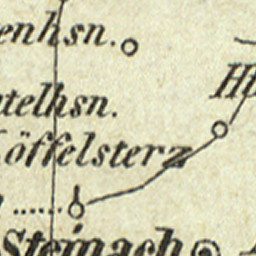 enhsn.
telhsn.
öffelsterz
Steinach